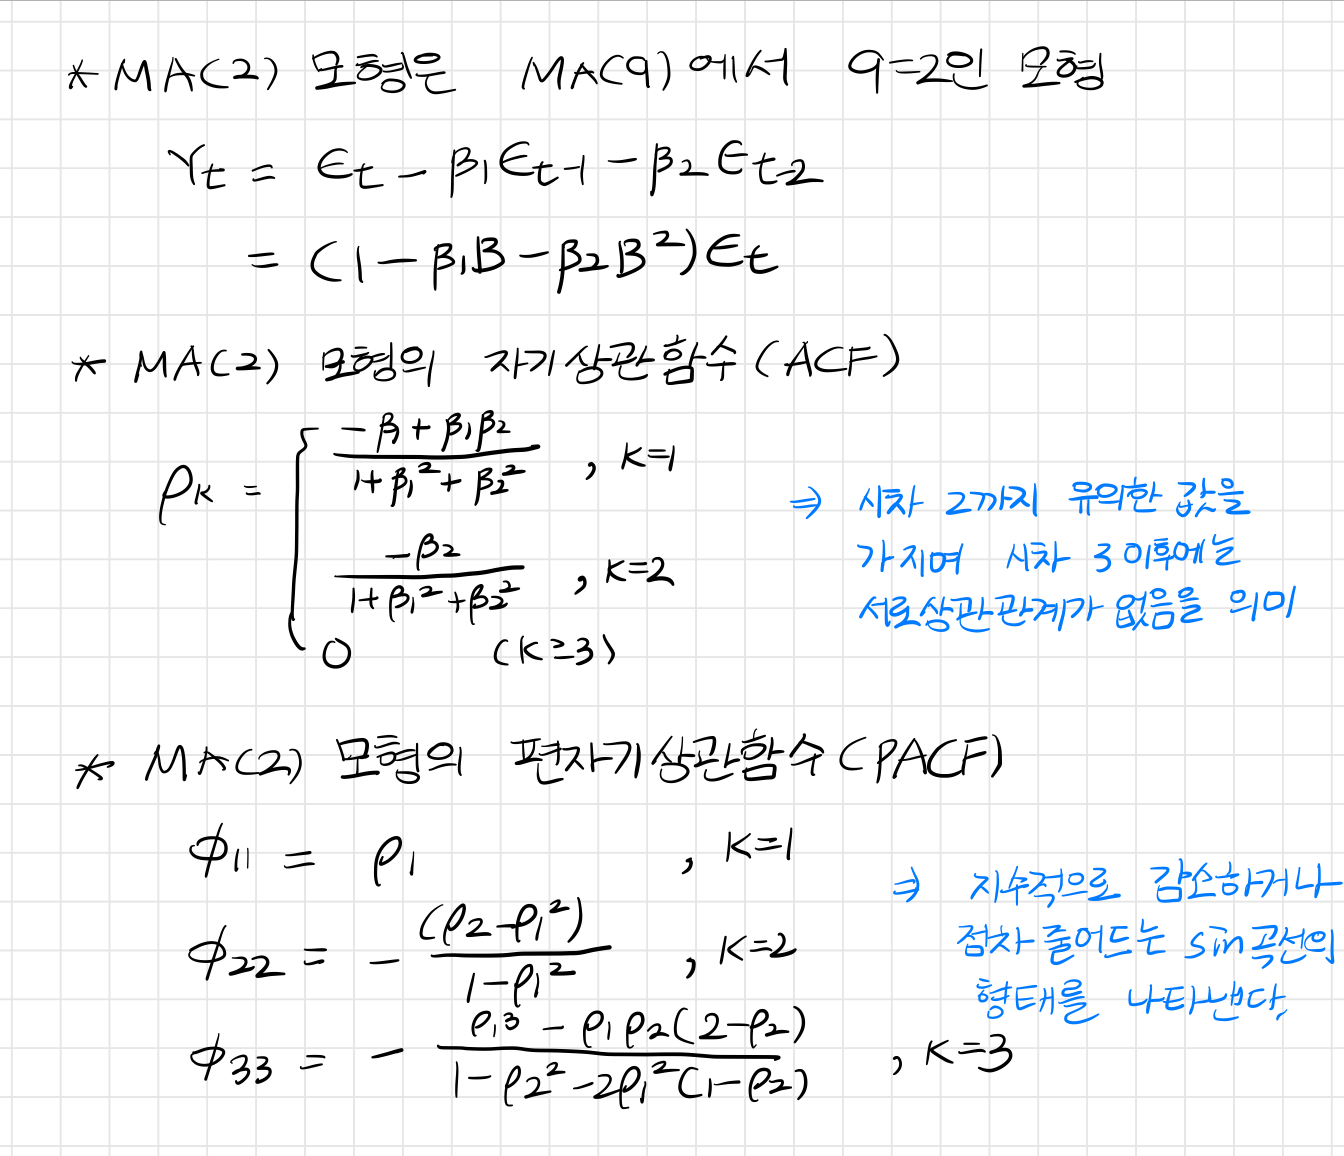 * MA(2) 모형은 MA(q)에서 q=2인 모형
Yt = ϵt - β1ϵt-1 - β2ϵt-2
= (1 - β1B - β2B²)ϵt
* MA(2) 모형의 자기상관함수(ACF)
ρk = { (-β1 + β1β2) / (1 + β1² + β2²) , k=1
(-β2) / (1 + β1² + β2²) , k=2
0 (k≥3)
⇒ 시차 2까지 유의한 값을
가지며 시차 3 이후에는
서로 상관관계가 없음을 의미
* MA(2) 모형의 편자기상관함수(PACF)
φ11 = ρ1 , k=1
φ22 = - (ρ2 - ρ1²) / (1 - ρ1²) , k=2
φ33 = - (ρ1³ - ρ1ρ2(2-ρ2)) / (1 - ρ2² - 2ρ1²(1-ρ2)) , k=3
⇒ 지수적으로 감소하거나
점차 줄어드는 sin곡선의
형태를 나타낸다.